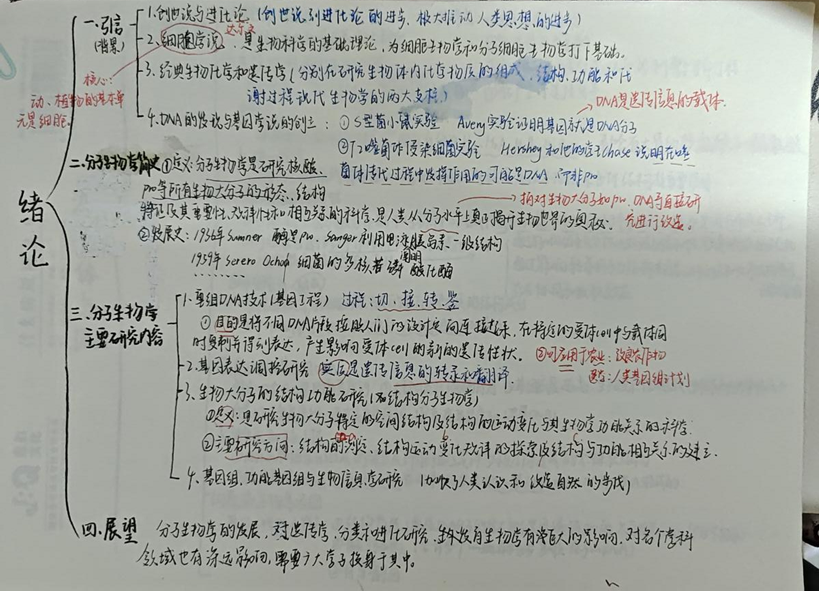 绪论
一.引信
(背景)
1.创世说与进化论(创世说到进化论的进步,极大推动人类思想的进步)
达尔文
2.细胞学说,是生物科学的基础理论,为细胞生物学和分子细胞生物学打下基础。
核心:
动、植物的基本单
元是细胞。
3.经典生物化学和遗传学(分别在研究生物体内化学物质的组成、结构、功能和代
谢过程 现代生物学的两大支柱)
DNA是遗传信息的载体.
4.DNA的发现与基因学说的创立:①S型菌小鼠实验 Avery实验证明基因就是DNA分子
②T2噬菌体侵染细菌实验 Hershey和他的学生Chase说明在噬
菌体传代过程中发挥作用的可能是DNA 而非pro
二.分子生物学简史
①定义:分子生物学是研究核酸、
pro等所有生物大分子的形态、结构
特征及其重要性、规律性和相互关系的科学,是人类从分子水平上真正揭开生物世界的奥秘.
指对生物大分子如pro、DNA等直接研
究进行改造.
②发展史:1936年Sumner 酶是pro. Sanger利用 一级结构
1959年 Ochoa 细菌的多核苷磷酸化酶
三.分子生物学
主要研究内容
1.重组DNA技术(基因工程) 过程:切、接、转、鉴
①目的是将不同DNA片段按照人们的设计定向连接起来,在特定的受体cell中与载体同
时复制并得到表达,产生影响受体cell的新的遗传性状.
②可应用于农业:改良作物
医学:人类基因组计划
2.基因表达调控研究 实质是遗传信息的转录和翻译.
3.生物大分子的结构功能研究(及结构分子生物学)
①定义:是研究生物大分子特定的空间结构及结构的运动变化与其生物学功能关系的科学
②主要研究方向:结构的测定、结构运动变化规律的探索及结构与功能相互关系的建立.
4.基因组、功能基因组与生物信息学研究 (加快了人类认识和改造自然的步伐)
四.展望
分子生物学的发展,对遗传学,分类和进化研究,生长发育生物学有深巨大的影响,对各个学科
领域也有深远影响,需要广大学子投身于其中。